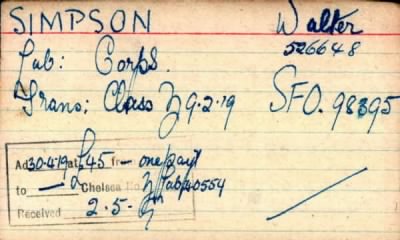 SIMPSON Walter
526648
Lab: Corps.
Trans: Class Z 9.2.19 SFO. 98395
Ad 30-4-19 at £45 fr — one payt
to — Chelsea No. Z/Lab/40554
Received 2.5.